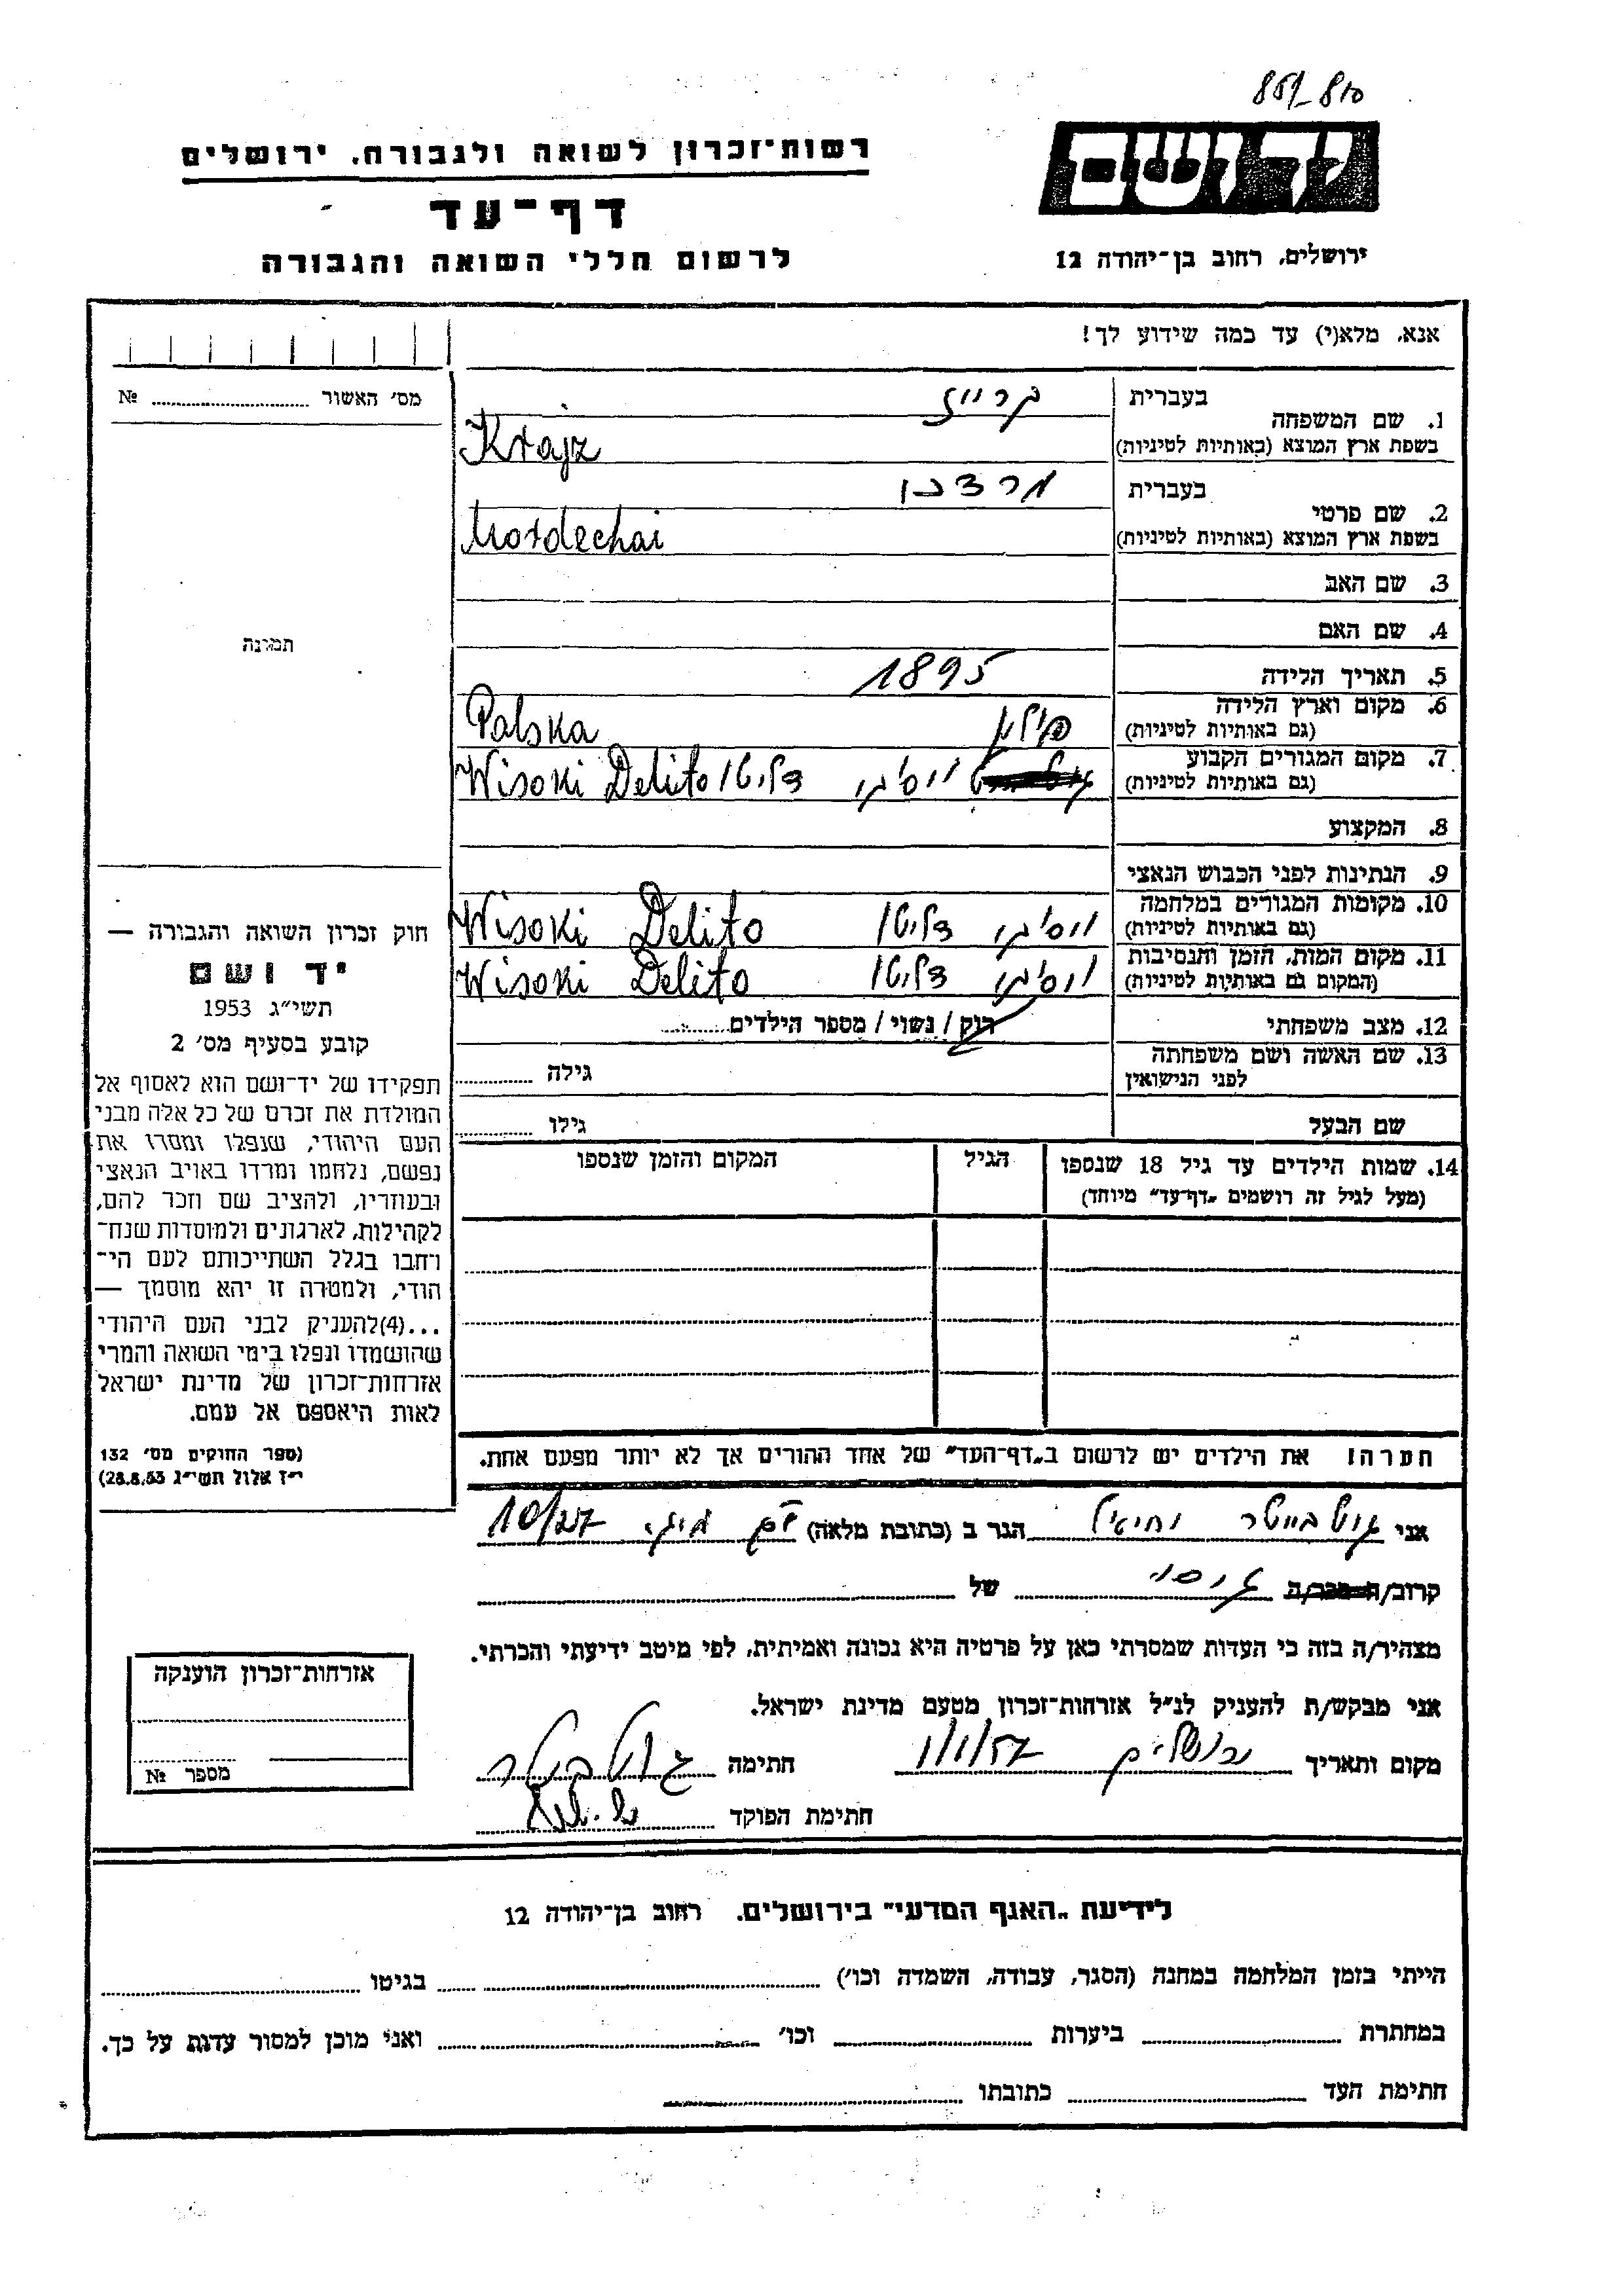 851-810
רשות־זכרון לשואה ולגבורה, ירושלים
יד ושם
דף־עד
לרשום חללי השואה והגבורה
ירושלים, רחוב בן־יהודה 12
אנא, מלא(י) עד כמה שידוע לך!
מס׳ האשור № 
1. שם המשפחה בעברית קרייז
בשפת ארץ המוצא (באותיות לטיניות) Krajz
2. שם פרטי בעברית מרדכי
בשפת ארץ המוצא (באותיות לטיניות) Mordechai
3. שם האב
4. שם האם
תמונה
5. תאריך הלידה 1895
6. מקום וארץ הלידה (גם באותיות לטיניות) פולין Polska
7. מקום המגורים הקבוע (גם באותיות לטיניות) ויסוקי דליטו Wisoki Delito
8. המקצוע
9. הנתינות לפני הכבוש הנאצי
10. מקומות המגורים במלחמה (גם באותיות לטיניות) ויסוקי דליטו Wisoki Delito
11. מקום המות, הזמן והנסיבות (המקום גם באותיות לטיניות) ויסוקי דליטו Wisoki Delito
12. מצב משפחתי רוק / נשוי / מספר הילדים
13. שם האשה ושם משפחתה לפני הנישואין גילה
שם הבעל גילו
14. שמות הילדים עד גיל 18 שנספו הגיל המקום והזמן שנספו
(מעל לגיל זה רושמים „דף־עד״ מיוחד)
חוק זכרון השואה והגבורה —
יד ושם
תשי״ג 1953
קובע בסעיף מס׳ 2
תפקידו של יד־ושם הוא לאסוף אל
המולדת את זכרם של כל אלה מבני
העם היהודי, שנפלו ומסרו את
נפשם, נלחמו ומרדו באויב הנאצי
ובעוזריו, ולהציב שם וזכר להם,
לקהילות, לארגונים ולמוסדות שנח־
רחבו בגלל השתייכותם לעם הי־
הודי, ולמטרה זו יהא מוסמך —
...(4)להעניק לבני העם היהודי
שהושמדו ונפלו בימי השואה והמרי
אזרחות־זכרון של מדינת ישראל
לאות היאספם אל עמם.
(ספר החוקים מס׳ 132
י״ז אלול תשי״ג 28.8.53)
הערה! את הילדים יש לרשום ב„דף־העד״ של אחד ההורים אך לא יותר מפעם אחת.
אני הגר ב (כתובת מלאה) 10/27
קרוב/ה מכר/ה גיסו של
מצהיר/ה בזה כי העדות שמסרתי כאן על פרטיה היא נכונה ואמיתית, לפי מיטב ידיעתי והכרתי.
אני מבקש/ת להעניק לנ״ל אזרחות־זכרון מטעם מדינת ישראל.
מקום ותאריך ירושלים 1/1/57 חתימה
חתימת הפוקד
אזרחות־זכרון הוענקה
מספר №
לידיעת „האגף המדעי״ בירושלים, רחוב בן־יהודה 12
הייתי בזמן המלחמה במחנה (הסגר, עבודה, השמדה וכו׳) בגיטו
במחתרת ביערות וכו׳ ואני מוכן למסור עדות על כך.
חתימת העד כתובתו